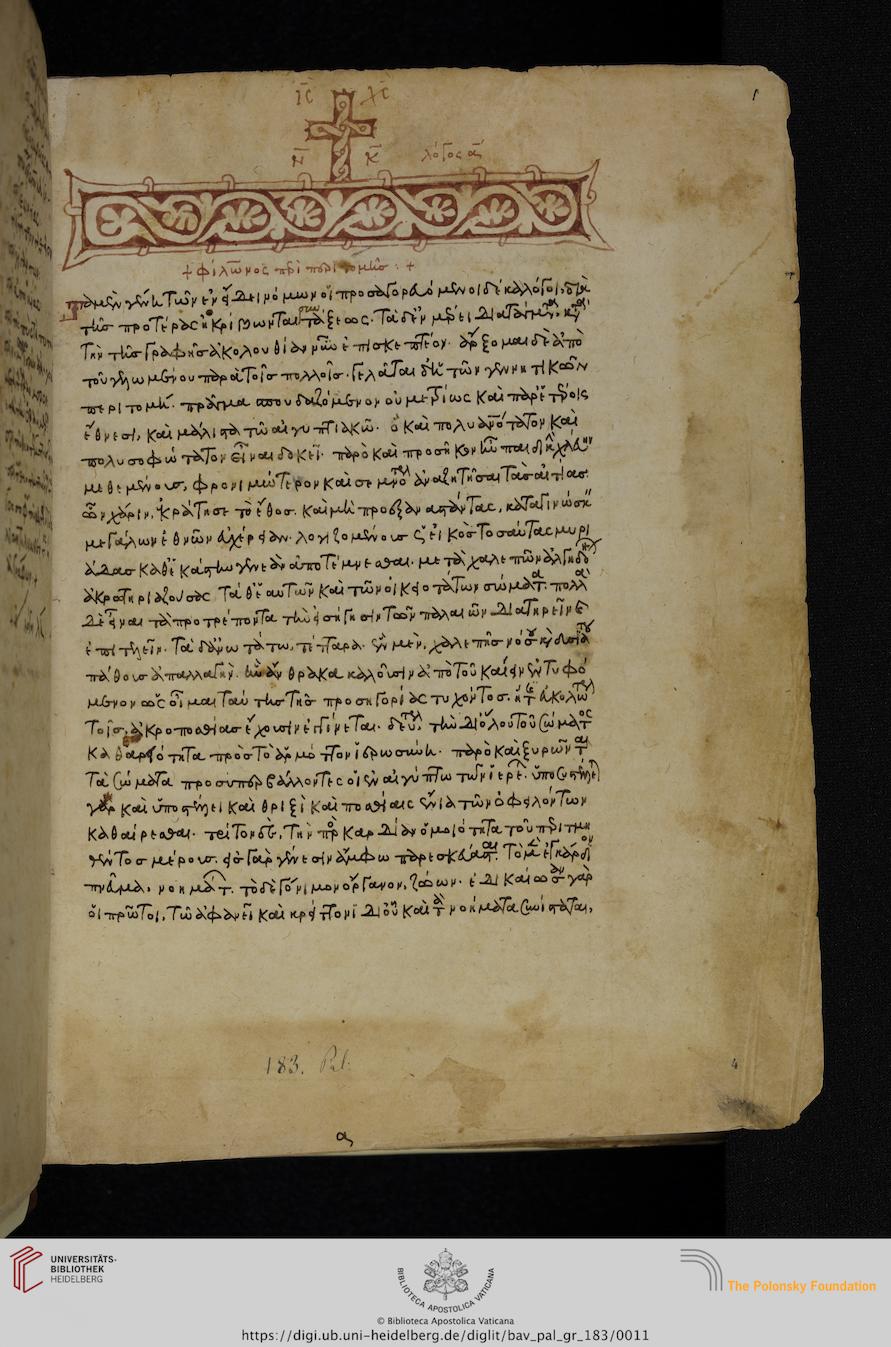 1
ΙC ΧC
Ν Κ λόγος α
+ φίλωνος περὶ περιτομῆς : +
Τὰ μὲν γένη τῶν ἐν εἴδει νόμων οἱ προσαγορευόμενοι δέκα λόγοι, διὰ
τῆς προτέρας ἠκρίβωνται συντάξεως. Τὰ δ' ἐν μέρει διατάγματα, κατὰ
τὴν τῆς γραφῆς ἀκολουθίαν νῦν ἐπισκεπτέον. ἄρξομαι δὲ ἀπὸ
τοῦ γελωμένου παρὰ τοῖς πολλοῖς. γελᾶται δὲ ἡ τῶν γεννητικῶν
περιτομή. πρᾶγμα σπουδαζόμενον οὐ μετρίως καὶ παρ' ἑτέροις
ἔθνεσι, καὶ μάλιστα τῶ αἰγυπτιακῶ. ὃ καὶ πολυανότατον καὶ
πολυσοφώτατον εἶναι δοκεῖ. παρὸ καὶ προσῆκον ἦν παιδικὴν χλεύην
μεθεμένους, φρονιμώτερον καὶ σεμνότερον ἀναζητῆσαι τὰς αἰτίας
ὧν χάριν, ἐκράτησε τὸ ἔθος. καὶ μὴ προεξανασπάντας, καταγινώσκειν
μεγάλων ἐθνῶν εὐχέρειαν. λογιζομένους ὅτι εἰκὸς τοσαύτας μυρι
άδας καθ' ἑκάστην γενεὰν ἀποτέμνεσθαι. μετὰ χαλεπῶν ἀλγηδόνων
ἀκρωτηριαζούσας τά θ' ἑαυτῶν καὶ τῶν οἰκειοτάτων σώματα. πολλὰ
δὲ εἶναι τὰ προτρέποντα τὴν εἰσήγησιν τῶν παλαιῶν διατηρεῖν
ἐπιτελεῖν. τὰ δ' ἀνωτάτω, τέτταρα. ἓν μὲν, χαλεπῆς νόσου καὶ δυσιάτου
πάθους ἀπαλλαγήν. ἣν ἄνθρακα καλοῦσιν ἀπὸ τοῦ καίειν ἐντυφό
μενον ὡς οἶμαι ταύτης τῆς προσηγορίας τυχόντος.
τοῖς ἀκροποσθίας ἔχουσιν ἐγγίνεται. δεύτερον τὴν δι' ὅλου τοῦ σώματος
καθαρότητα πρὸς τὸ ἁρμόττον ἱερωσύνη. παρὸ καὶ ξυρῶνται
τὰ σώματα προσυπερβάλλοντες οἱ ἐν αἰγύπτω τῶν ἱερέων. ὑποσυλλέγεται
γὰρ καὶ ὑποστέλλει καὶ θριξὶ καὶ ποσθίαις ἔνια τῶν ὀφειλόντων
καθαίρεσθαι. τρίτον δὲ, τὴν πρὸς καρδίαν ὁμοιότητα τοῦ περιτμη
θέντος μέρους. εἰς γὰρ γένεσιν ἄμφω παρεσκεύασται. τὸ μὲν ἐγκάρδιον
πνεῦμα, νοημάτων. τὸ δὲ γόνιμον ὄργανον, ζώων. ἐδικαίωσαν γὰρ
οἱ πρῶτοι, τῶ ἀφανεῖ καὶ κρείττονι δι' οὗ καὶ τὰ νοήματα συνίσταται,
183. Pal.
4
α
UNIVERSITÄTS-
BIBLIOTHEK
HEIDELBERG
BIBLIOTECA APOSTOLICA VATICANA
The Polonsky Foundation
© Biblioteca Apostolica Vaticana
https://digi.ub.uni-heidelberg.de/diglit/bav_pal_gr_183/0011